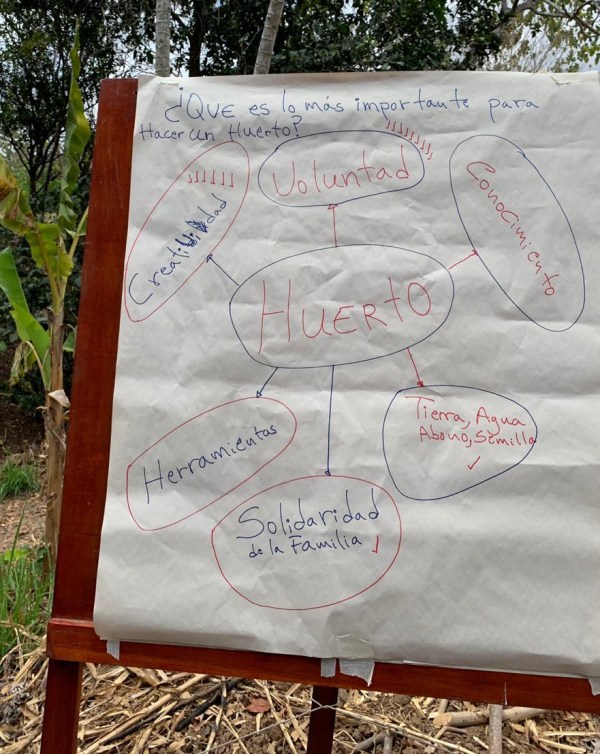 ¿QUE es lo más importante para
Hacer un Huerto?
Voluntad
Creatividad
Conocimiento
HUERTO
Tierra, Agua
Abono, Semilla
Herramientas
Solidaridad
de la Familia